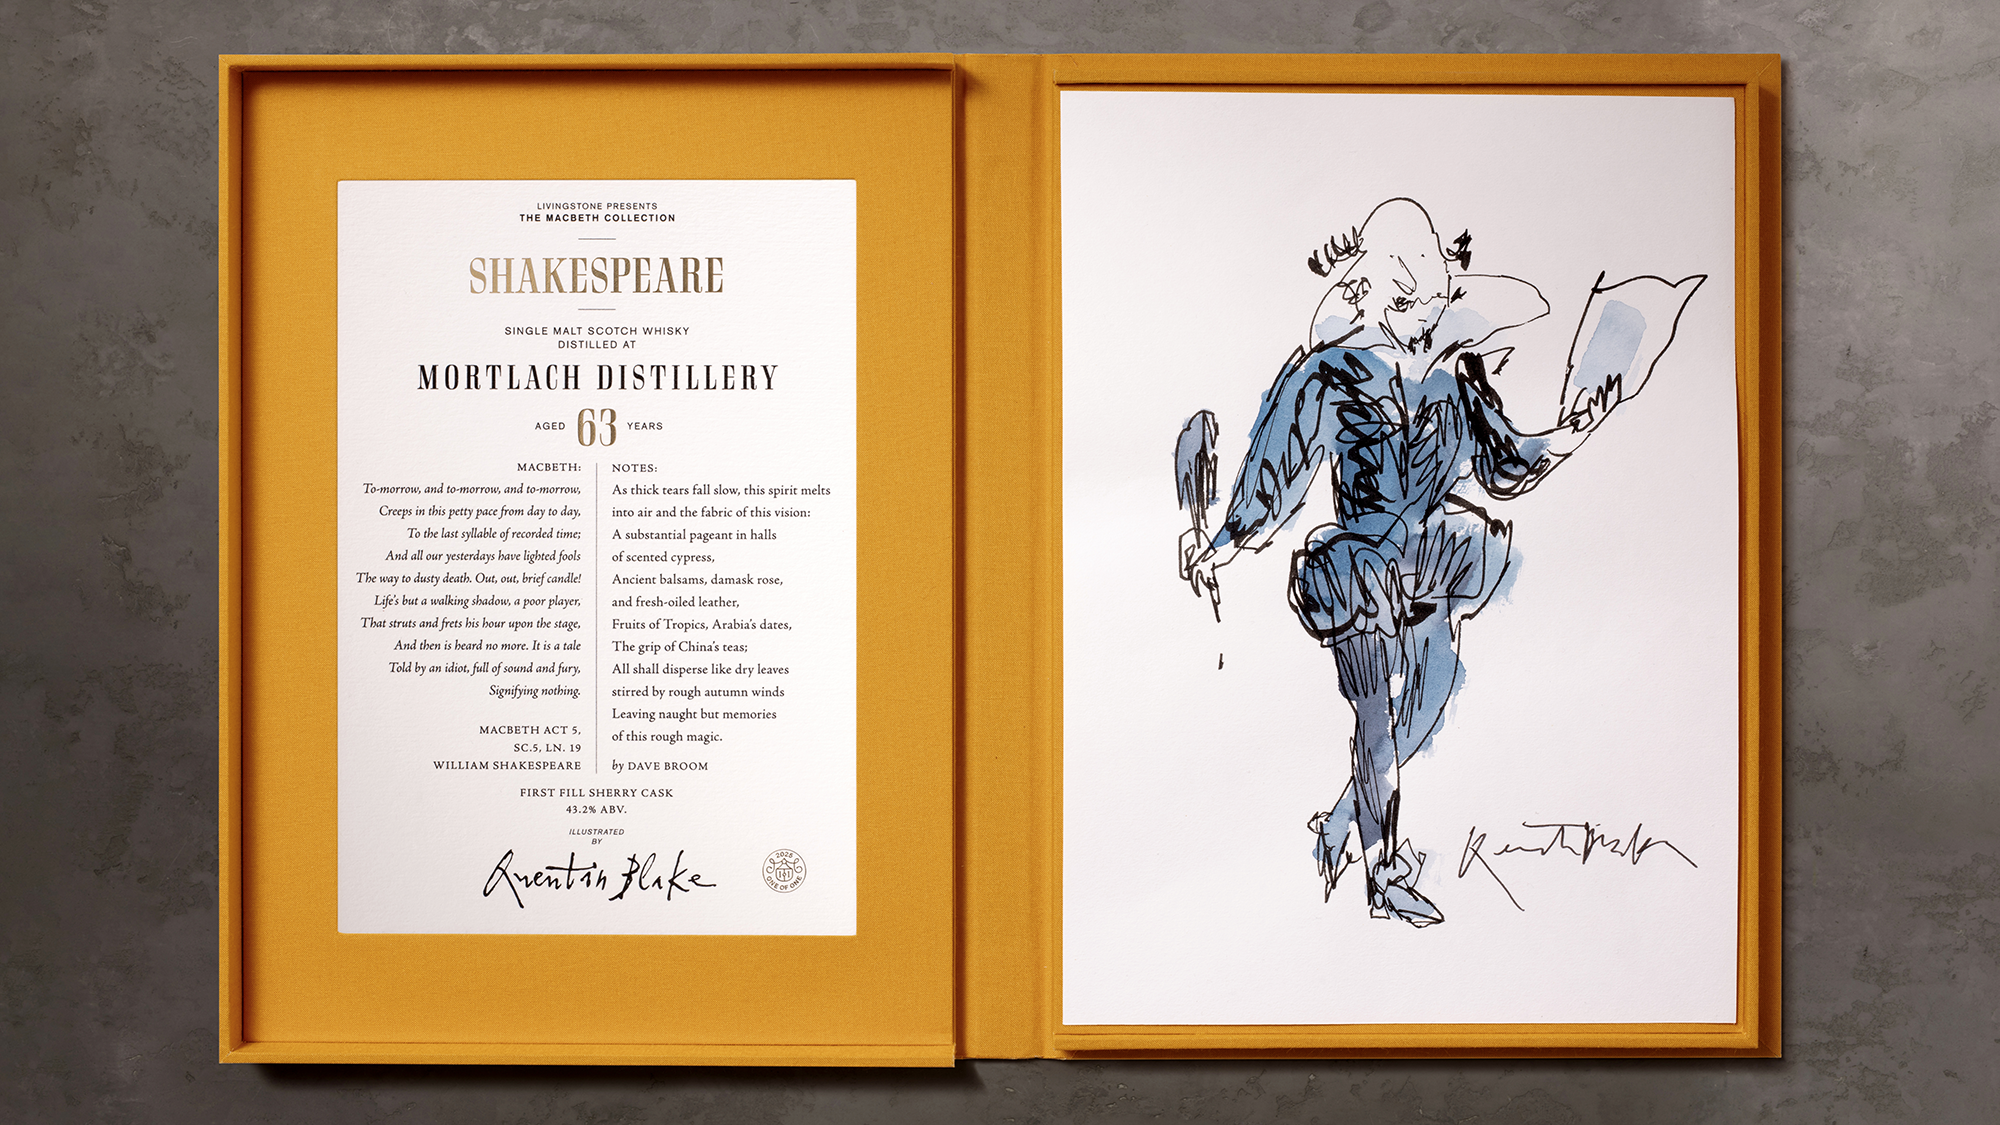 LIVINGSTONE PRESENTS
THE MACBETH COLLECTION
SHAKESPEARE
SINGLE MALT SCOTCH WHISKY
DISTILLED AT
MORTLACH DISTILLERY
AGED 63 YEARS
MACBETH:
To-morrow, and to-morrow, and to-morrow,
Creeps in this petty pace from day to day,
To the last syllable of recorded time;
And all our yesterdays have lighted fools
The way to dusty death. Out, out, brief candle!
Life's but a walking shadow, a poor player,
That struts and frets his hour upon the stage,
And then is heard no more. It is a tale
Told by an idiot, full of sound and fury,
Signifying nothing.
MACBETH ACT 5,
SC.5, LN. 19
WILLIAM SHAKESPEARE
NOTES:
As thick tears fall slow, this spirit melts
into air and the fabric of this vision:
A substantial pageant in halls
of scented cypress,
Ancient balsams, damask rose,
and fresh-oiled leather,
Fruits of Tropics, Arabia's dates,
The grip of China's teas;
All shall disperse like dry leaves
stirred by rough autumn winds
Leaving naught but memories
of this rough magic.
by DAVE BROOM
FIRST FILL SHERRY CASK
43.2% ABV.
ILLUSTRATED
BY
Quentin Blake
2026
ONE OF ONE
Quentin Blake